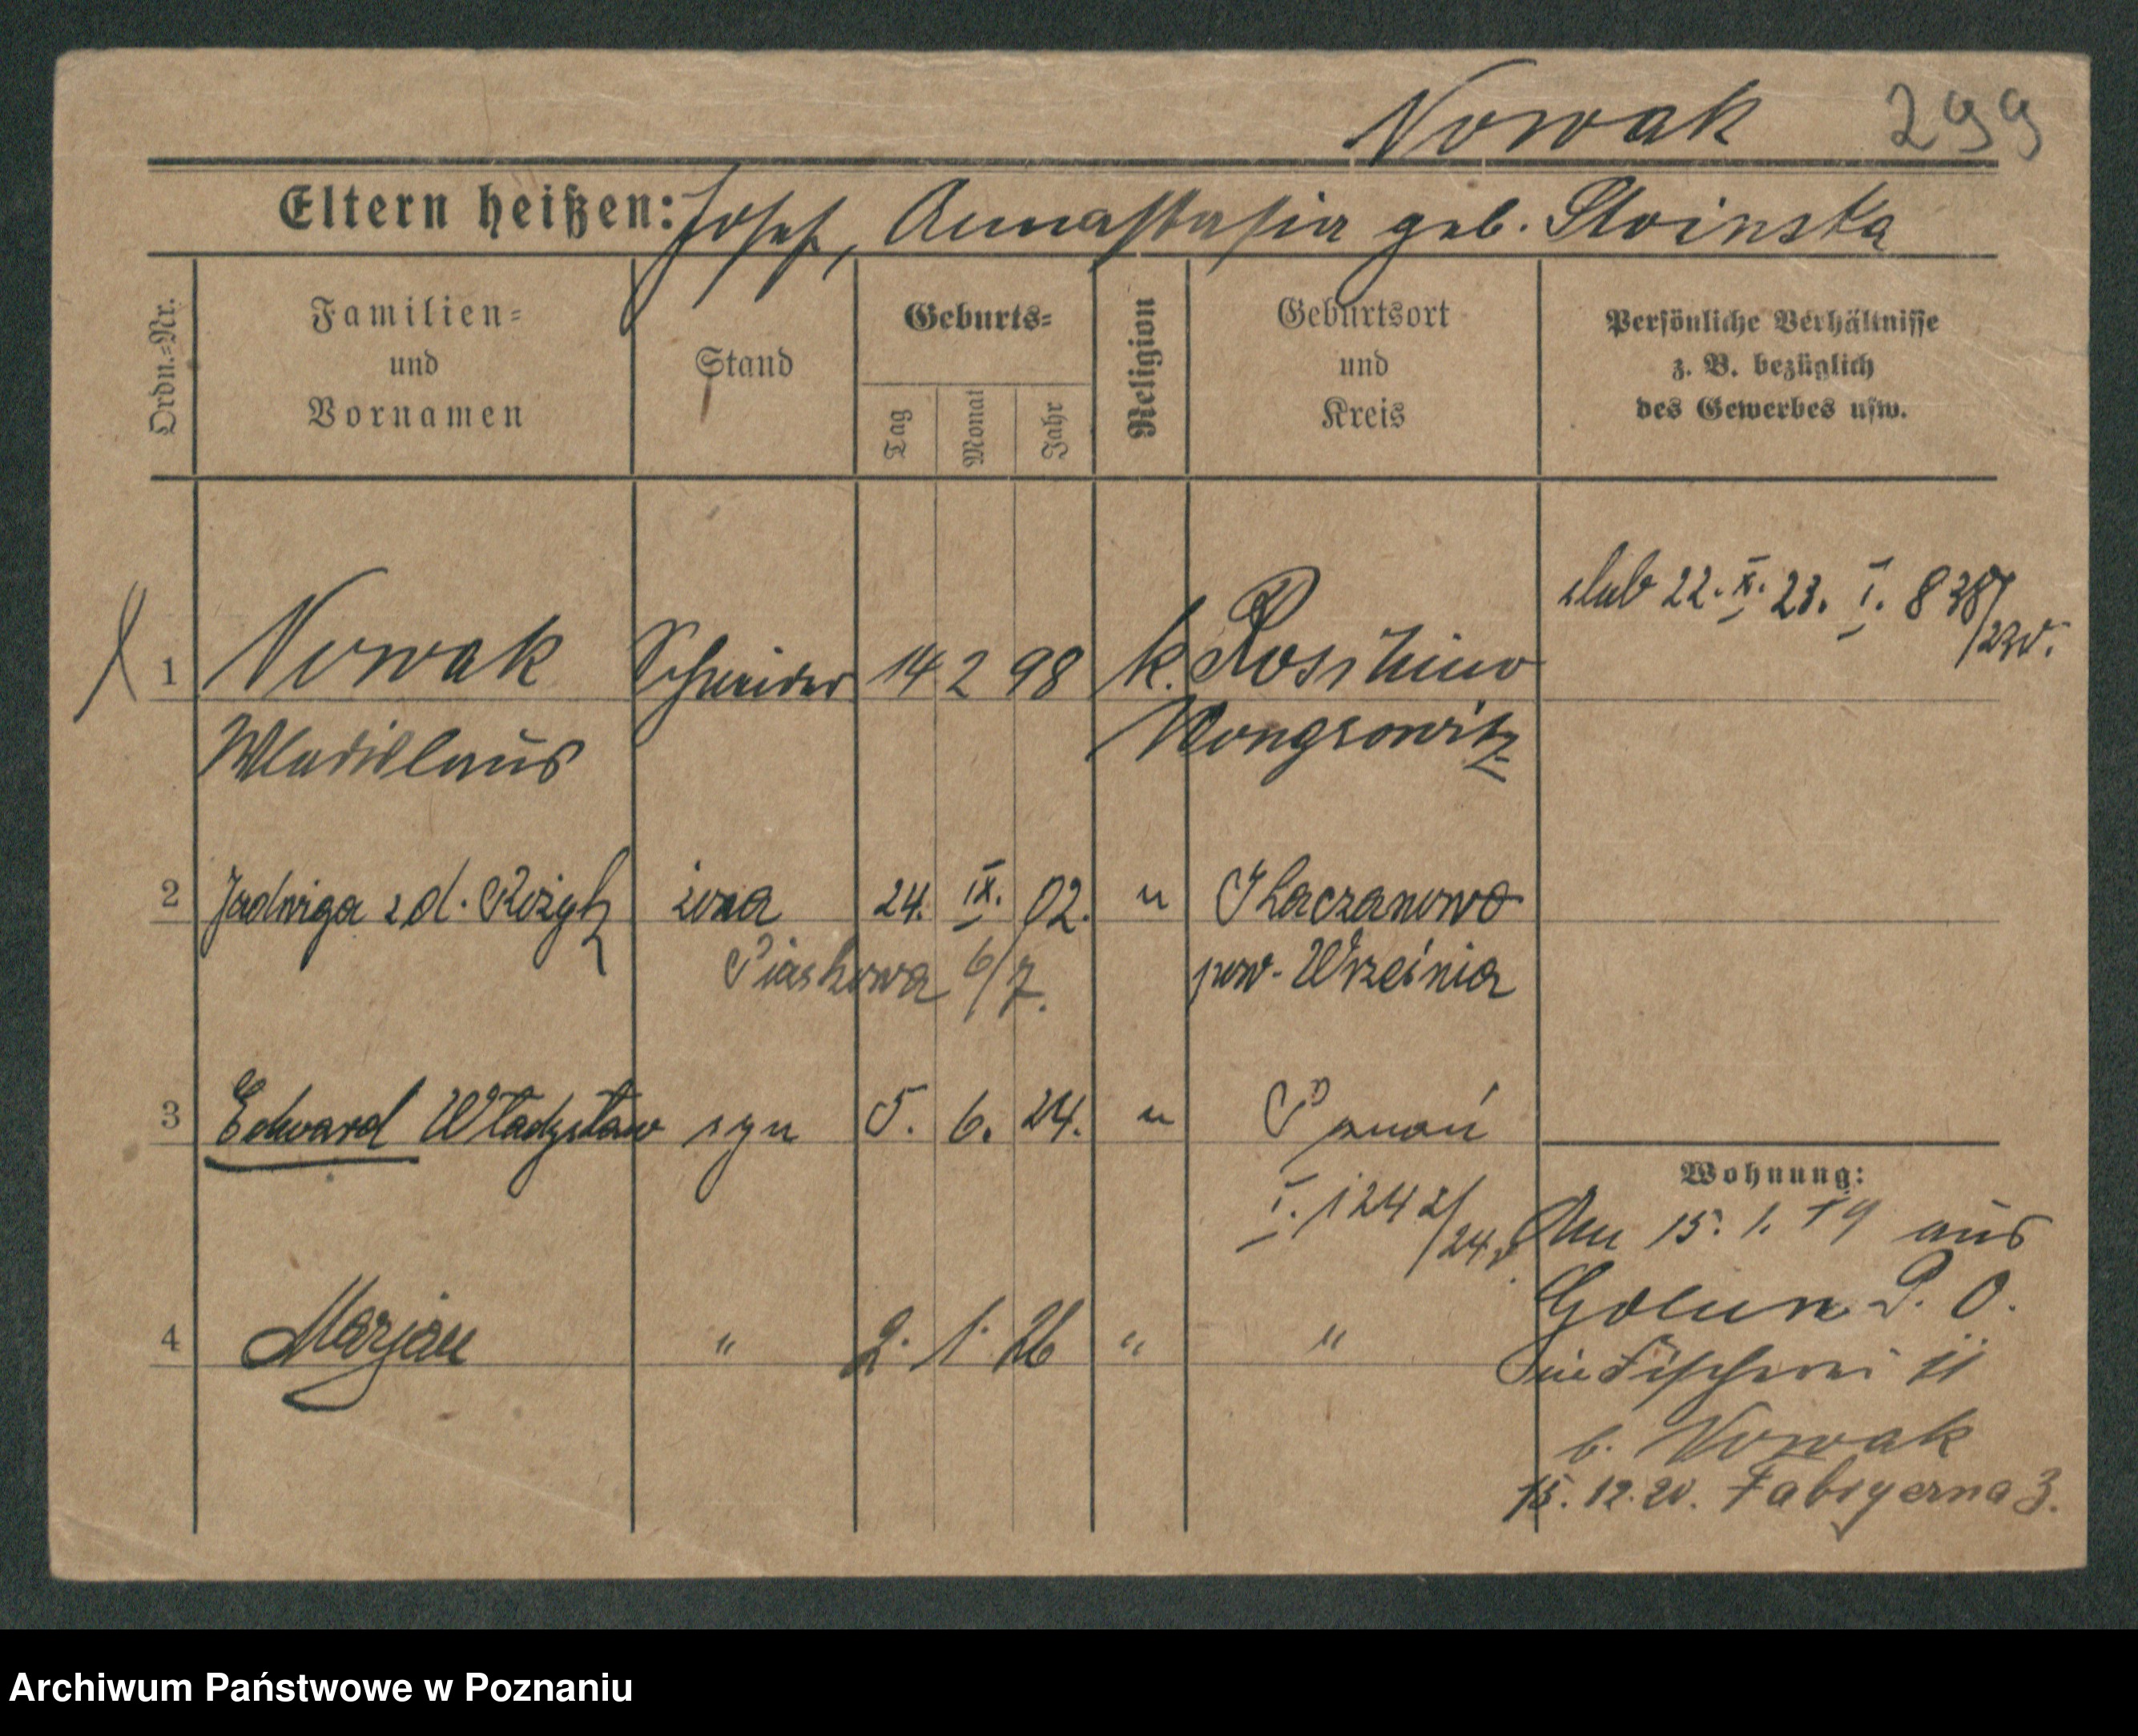 Nowak 299
Eltern heißen: Josef, Annastasia geb. Sloinska
Ordn.=Nr.
Familien=
und
Vornamen
Stand
Geburts=
Tag
Monat
Jahr
Religion
Geburtsort
und
Kreis
Persönliche Verhältnisse
z. B. bezüglich
des Gewerbes usw.
ślub 22. X. 23. I. 838/23
1 Nowak Schneider 14 2 98 k.
Wladislaus Wongrowitz
2 Jadwiga z d. żona 24. IX. 02. " Kaczanowo
Piaskowa 6/7. pow. Września
3 Edward Władysław syn 5. 6. 24. " Poznań
I. 1242/24
4 Marjan " 2. 1. 26 " "
Wohnung:
Am 15. 1. 19 aus
P. O.
11
b. Nowak
15. 12. 20. 3.
Archiwum Państwowe w Poznaniu